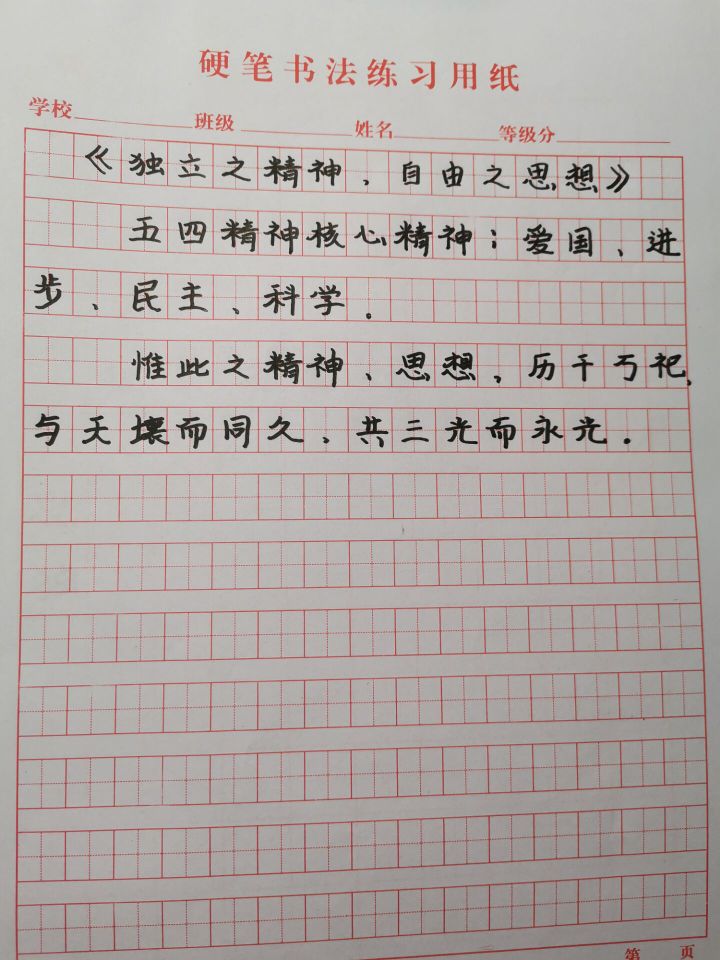 硬笔书法练习用纸
学校 班级 姓名 等级分
《独立之精神，自由之思想》
五四精神核心精神：爱国、进
步、民主、科学.
惟此之精神、思想，历千丂祀，
与天壤而同久，共三光而永光.
第 页